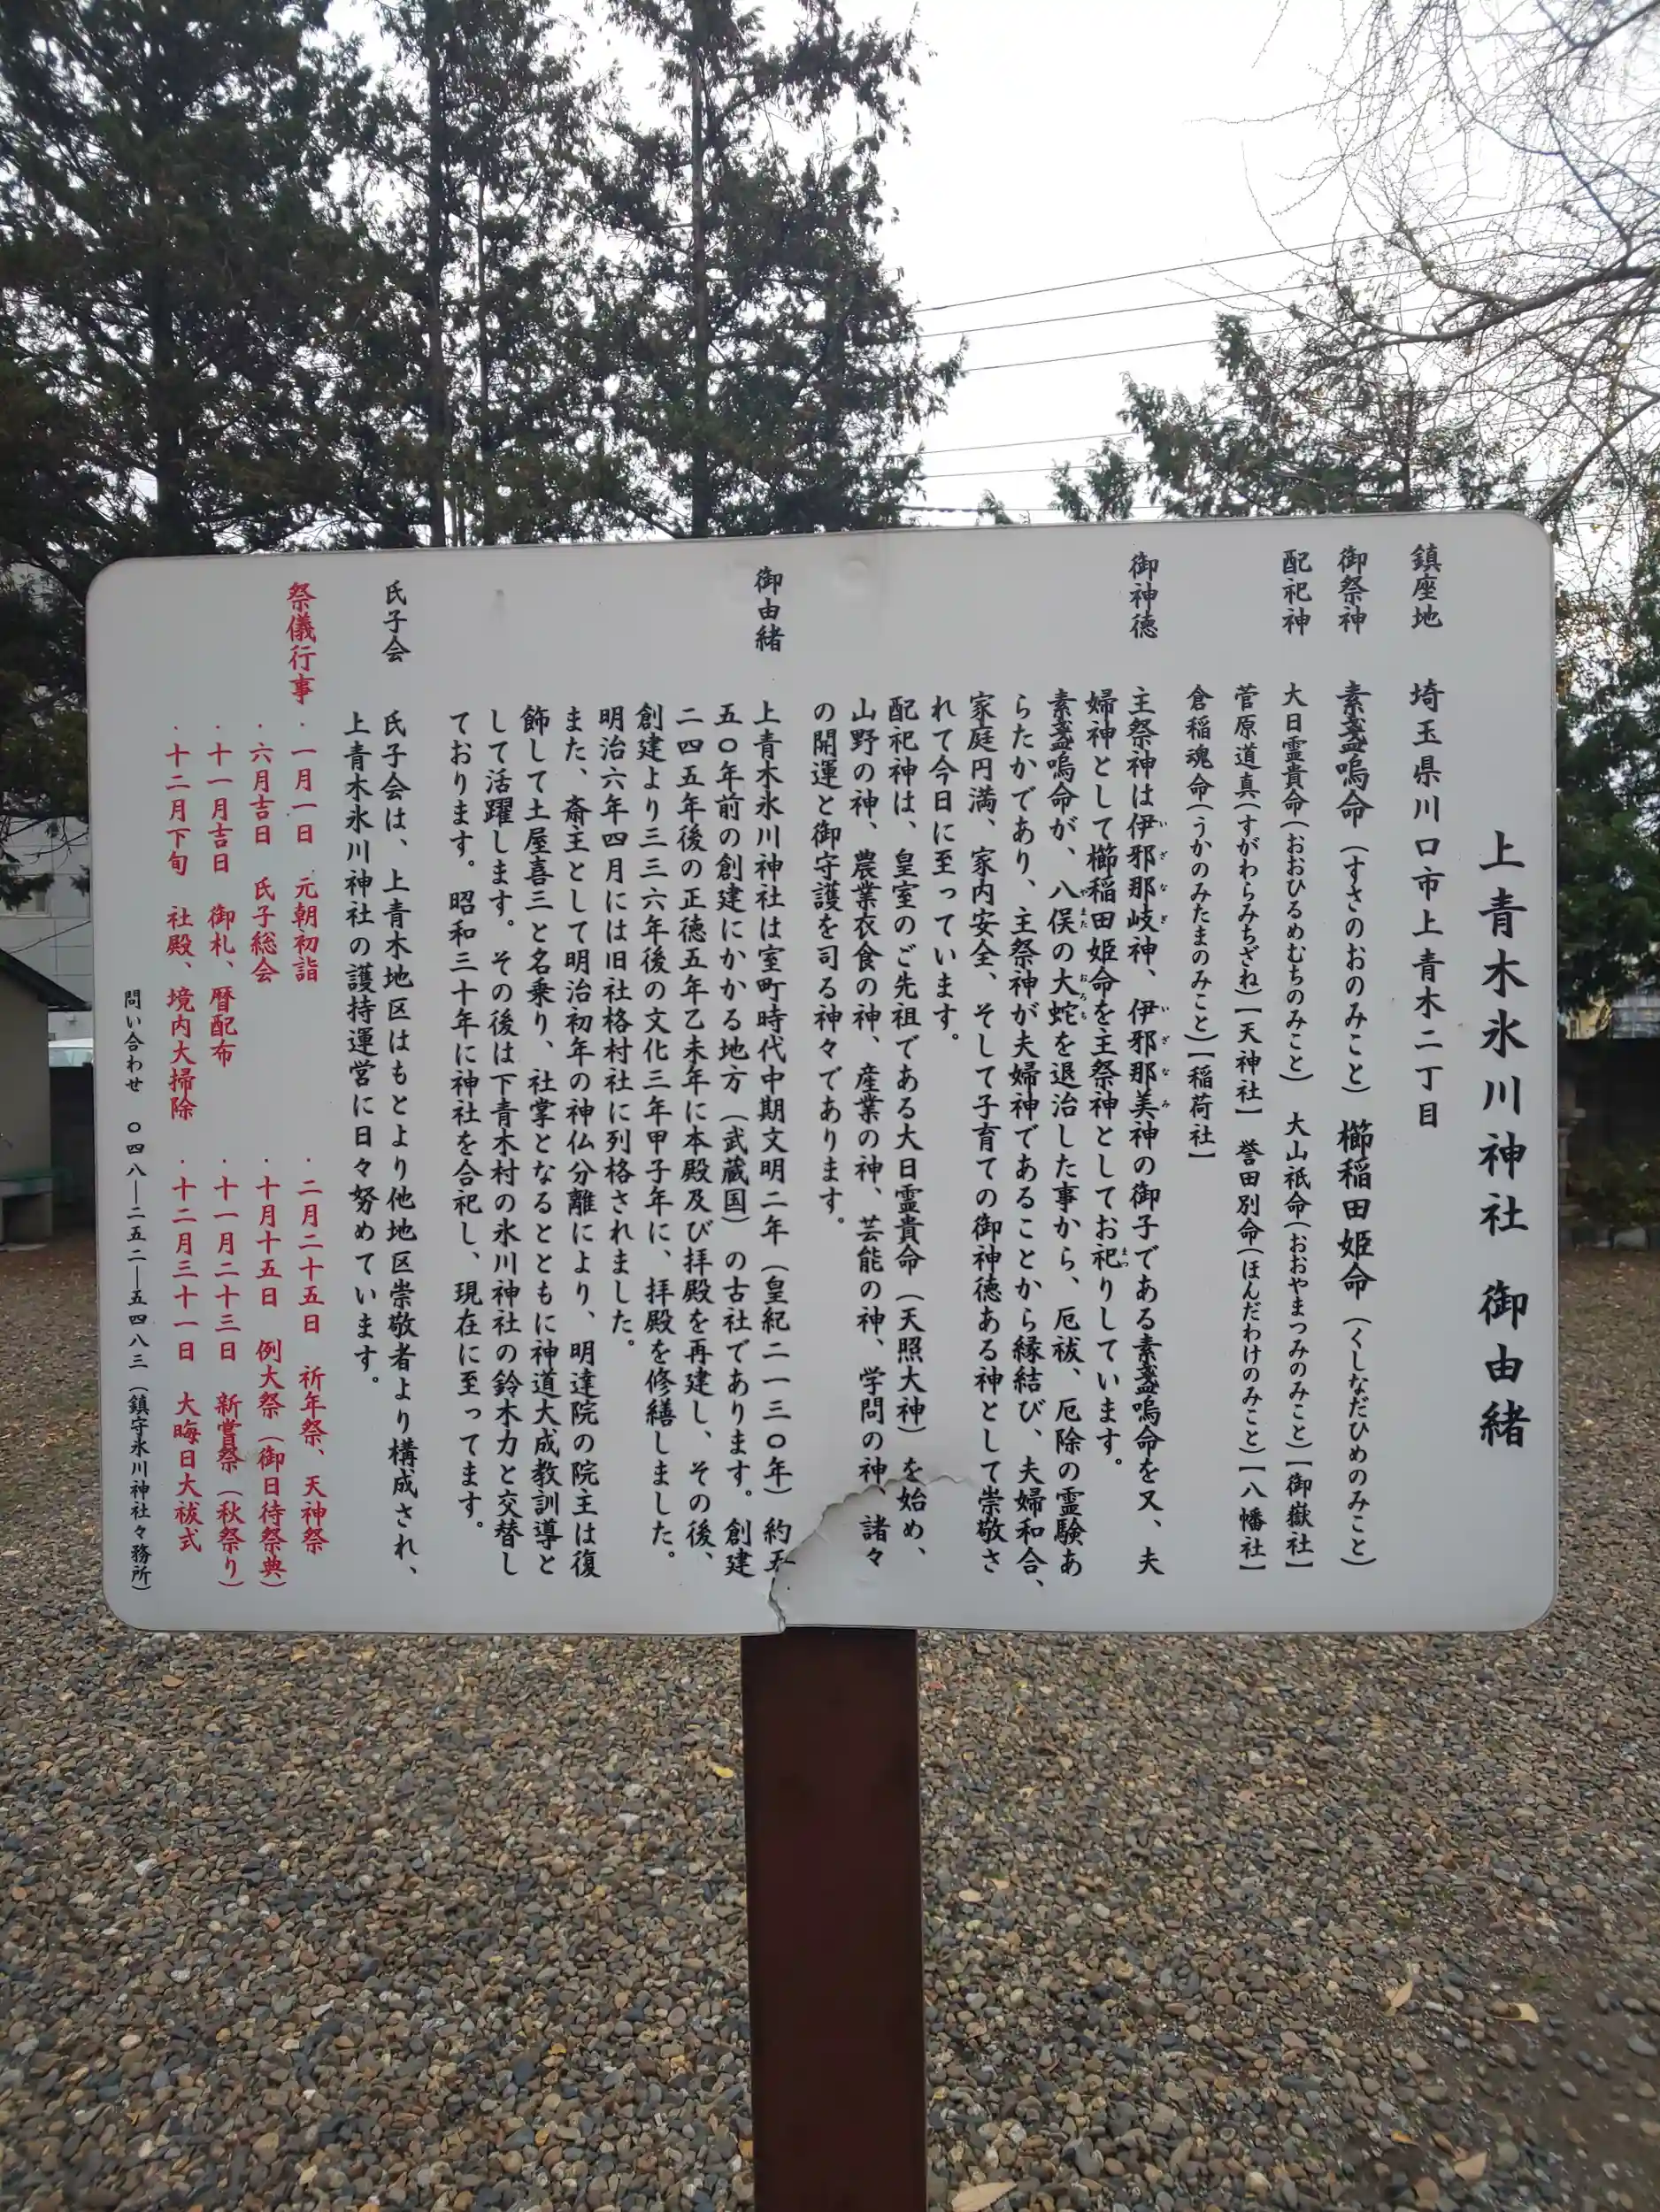 上青木氷川神社 御由緒
鎮座地 埼玉県川口市上青木二丁目
御祭神 素盞嗚命(すさのおのみこと) 櫛稲田姫命(くしなだひめのみこと)
配祀神 大日霊貴命(おおひるめむちのみこと) 大山祇命(おおやまつみのみこと)【御嶽社】
菅原道真(すがわらみちざね)【天神社】 誉田別命(ほんだわけのみこと)【八幡社】
倉稲魂命(うかのみたまのみこと)【稲荷社】
御神徳 主祭神は伊邪那岐神、伊邪那美神の御子である素盞嗚命を又、夫
婦神として櫛稲田姫命を主祭神としてお祀りしています。
素盞嗚命が、八俣の大蛇を退治した事から、厄祓、厄除の霊験あ
らたかであり、主祭神が夫婦神であることから縁結び、夫婦和合、
家庭円満、家内安全、そして子育ての御神徳ある神として崇敬さ
れて今日に至っています。
配祀神は、皇室のご先祖である大日霊貴命(天照大神)を始め、
山野の神、農業衣食の神、産業の神、芸能の神、学問の神、諸々
の開運と御守護を司る神々であります。
御由緒 上青木氷川神社は室町時代中期文明二年(皇紀二一三〇年)約五
五〇年前の創建にかかる地方(武蔵国)の古社であります。創建
二四五年後の正徳五年乙未年に本殿及び拝殿を再建し、その後、
創建より三三六年後の文化三年甲子年に、拝殿を修繕しました。
明治六年四月には旧社格村社に列格されました。
また、斎主として明治初年の神仏分離により、明達院の院主は復
飾して土屋喜三と名乗り、社掌となるとともに神道大成教訓導と
して活躍します。その後は下青木村の氷川神社の鈴木力と交替し
ております。昭和三十年に神社を合祀し、現在に至ってます。
氏子会 氏子会は、上青木地区はもとより他地区崇敬者より構成され、
上青木氷川神社の護持運営に日々努めています。
祭儀行事 ・一月一日 元朝初詣 ・二月二十五日 祈年祭、天神祭
・六月吉日 氏子総会 ・十月十五日 例大祭(御日待祭典)
・十一月吉日 御札、暦配布 ・十一月二十三日 新嘗祭(秋祭り)
・十二月下旬 社殿、境内大掃除 ・十二月三十一日 大晦日大祓式
問い合わせ 〇四八―二五二―五四八三(鎮守氷川神社々務所)